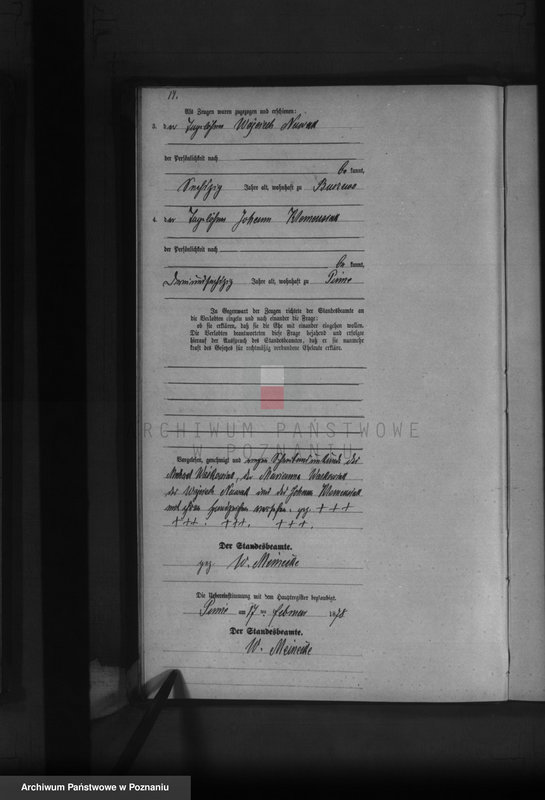 14.
Als Zeugen waren zugezogen und erschienen:
3. der Tagelöhner Wojciech Nawak
der Persönlichkeit nach
be kannt,
Sechszig Jahre alt, wohnhaft zu
4. der Tagelöhner Johann
der Persönlichkeit nach
be kannt,
Jahre alt, wohnhaft zu Pinne
In Gegenwart der Zeugen richtete der Standesbeamte an
die Verlobten einzeln und nach einander die Frage:
ob sie erklären, daß sie die Ehe mit einander eingehen wollen.
Die Verlobten beantworteten diese Frage bejahend und erfolgte
hierauf der Ausspruch des Standesbeamten, daß er sie nunmehr
kraft des Gesetzes für rechtmäßig verbundene Eheleute erkläre.
ARCHIWUM PAŃSTWOWE
W POZNANIU
Vorgelesen, genehmigt und wegen Schreibensunkunde des
der Marianna
des Wojciech Nawak und des Johann
mit ihren Handzeichen versehen. gez. +++
+++. +++. +++.
Der Standesbeamte.
gez. W. Meinecke
Die Uebereinstimmung mit dem Hauptregister beglaubigt.
Pinne am 17 ten Februar 1878
Der Standesbeamte.
W. Meinecke
Archiwum Państwowe w Poznaniu